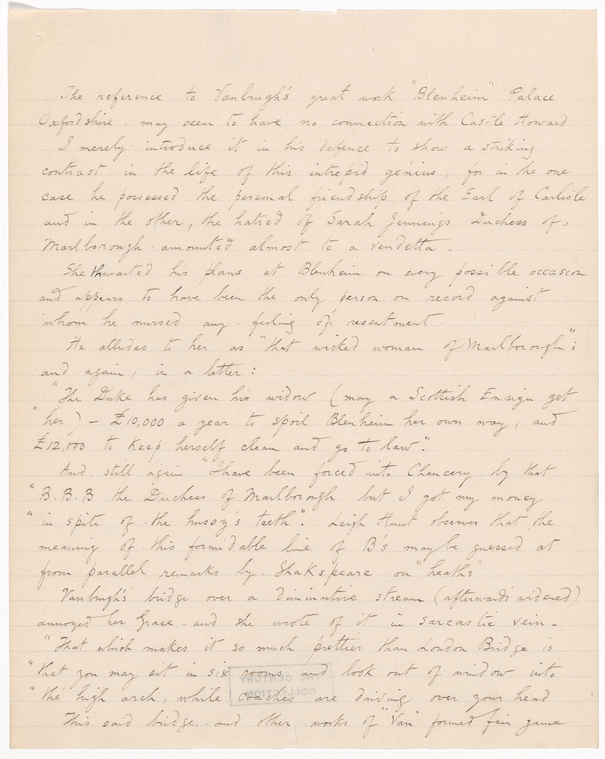 The reference to Vanbrugh's great work "Blenheim" Palace
Oxfordshire may seem to have no connection with Castle Howard
I merely introduce it in his defence to show a striking
contrast in the life of this intrepid genius, for in the one
case he possessed the personal friendship of the Earl of Carlisle
and in the other, the hatred of Sarah Jennings Duchess of
Marlborough amounted almost to a vendetta.
She thwarted his plans at Blenheim on every possible occasion
and appears to have been the only person on record against
whom he nursed any feeling of resentment
He alludes to her as "that wicked woman of Marlborough";
and again, in a letter:
"The Duke has given his widow (may a Scottish Ensign get
"her) - £10,000 a year to spoil Blenheim her own way, and
£12,000 to keep herself clean and go to law".
And, still again "I have been forced into Chancery by that
"B.B.B the Duchess of Marlborough but I got my money
"in spite of the hussy's teeth". Leigh Hunt observes that the
meaning of this formidable line of B's may be guessed at
from parallel remarks by Shakspeare on "heaths"
Vanbrugh's bridge over a diminutive stream (afterwards widened)
annoyed her Grace and she wrote of it in sarcastic vein -
"That which makes it so much prettier than London Bridge is
"that you may sit in six rooms and look out of window into
"the high arch, while coaches are driving over your head
This said bridge and other works of "Van" formed fair game
THE CENTURY
COLLECTION